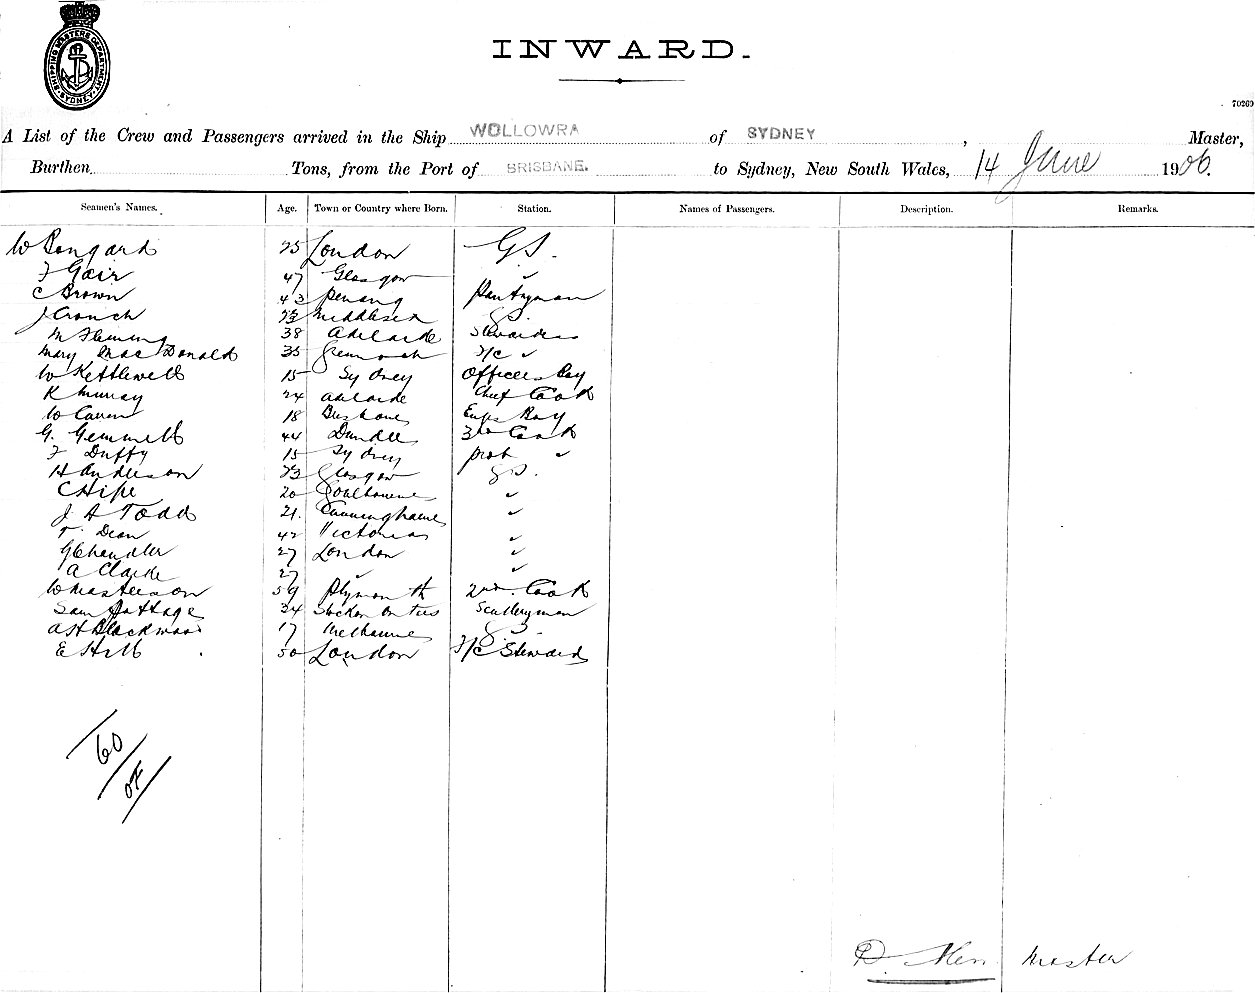 SHIPPING MASTERS DEPARTMENT
SYDNEY
INWARD.
70269
A List of the Crew and Passengers arrived in the Ship WOLLOWRA of SYDNEY , Master,
Burthen Tons, from the Port of BRISBANE. to Sydney, New South Wales, 14 June 1906.
Seamen's Names. Age. Town or Country where Born. Station. Names of Passengers. Description. Remarks.
W 25 London GS.
F Gair 47 Glasgow ✓
C Brown 43 Penang Pantryman
J Crouch 23 Middlesex GS.
M Fleming 38 Adelaide Stewardess
Mary MacDonald 35 Greenock F/C ✓
W Kettlewell 15 Sydney Officers Boy
R Murray 24 Adelaide Chief Cook
W 18 Brisbane Engs Boy
G. Gemmell 44 Dundee 3rd Cook
F Duffy 15 Sydney ✓
H Anderson 23 Glasgow GS.
C Hipe 20 Goulbourne ✓
J A Todd 21. ✓
T. Dean 42 Victoria ✓
G Chandler 27 London ✓
A Clarke 27 ✓ ✓
W Masterson 59 Plymouth 2nd. Cook
Sam 34 Stockton on Tees Sculleryman
A H Blackwood 17 Melbourne GS.
E Hill 50 London F/C Steward
60
OF
D. Master